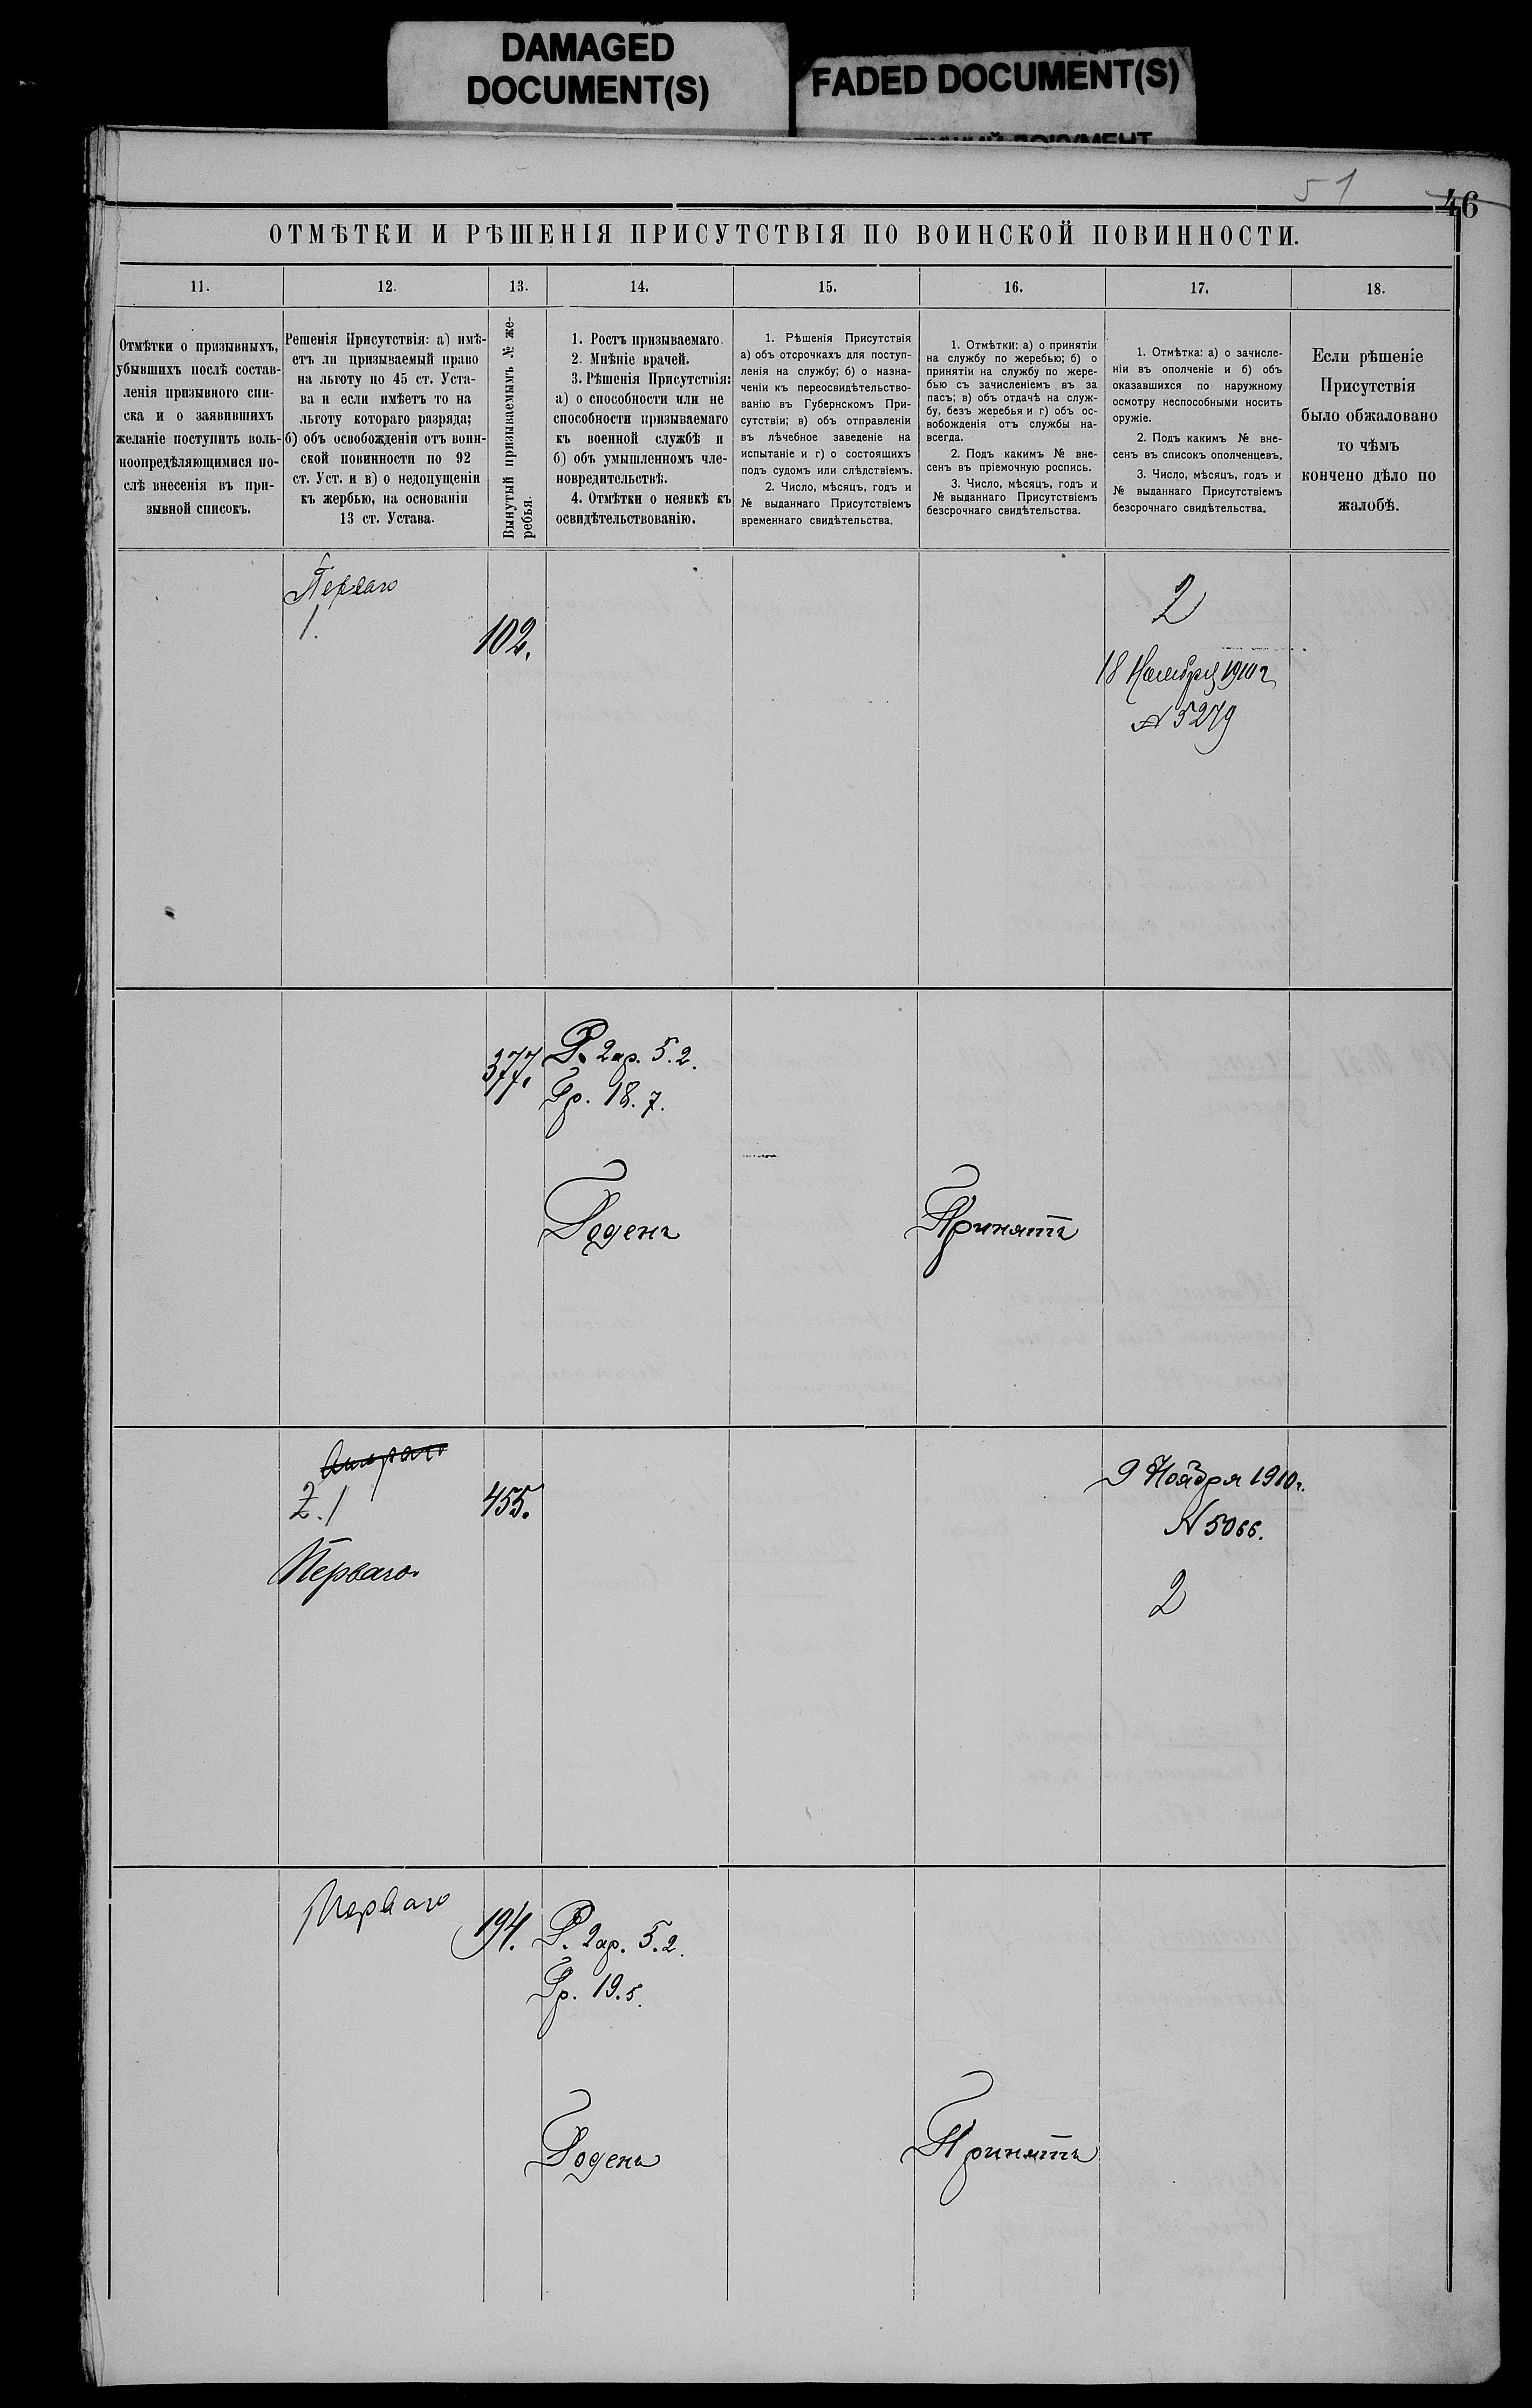 DAMAGED
DOCUMENT(S)
FADED DOCUMENT(S)
51
46
ОТМѢТКИ И РѢШЕНІЯ ПРИСУТСТВІЯ ПО ВОИНСКОЙ ПОВИННОСТИ.
11.
12.
13.
14.
15.
16.
17.
18.
Отмѣтки о призывныхъ,
убывшихъ послѣ состав-
ленія призывного спи-
ска и о заявившихъ
желаніе поступить воль-
ноопредѣляющимися по-
слѣ внесенія въ при-
зывной списокъ.
Решенія Присутствія: а) имѣ-
етъ ли призываемый право
на льготу по 45 ст. Уста-
ва и если имѣетъ то на
льготу котораго разряда;
б) объ освобожденіи отъ воин-
ской повинности по 92
ст. Уст. и в) о недопущеніи
къ жербью, на основаніи
13 ст. Устава.
Вынутый призываемымъ № же-
ребья.
1. Ростъ призываемаго.
2. Мнѣніе врачей.
3. Рѣшенія Присутствія:
а) о способности или не
способности призываемаго
къ военной службѣ и
б) объ умышленномъ чле-
новредительствѣ.
4. Отмѣтки о неявкѣ къ
освидѣтельствованію.
1. Рѣшенія Присутствія
а) объ отсрочкахъ для поступ-
ленія на службу; б) о назна-
ченіи къ переосвидѣтельство-
ванію въ Губернскомъ При-
сутствіи; в) объ отправленіи
въ лѣчебное заведеніе на
испытаніе и г) о состоящихъ
подъ судомъ или слѣдствіемъ.
2. Число, мѣсяцъ, годъ и
№ выданнаго Присутствіемъ
временнаго свидѣтельства.
1. Отмѣтки: а) о принятіи
на службу по жеребью; б) о
принятіи на службу по жере-
бью съ зачисленіемъ въ за
пасъ; в) объ отдачѣ на служ-
бу, безъ жеребья и г) объ ос-
вобожденія отъ службы на-
всегда.
2. Подъ какимъ № вне-
сенъ въ пріемочную роспись.
3. Число, мѣсяцъ, годъ и
№ выданнаго Присутствіемъ
безсрочнаго свидѣтельства.
1. Отмѣтка: а) о зачисле-
ніи въ ополченіе и б) объ
оказавшихся по наружному
осмотру неспособными носить
оружіе.
2. Подъ какимъ № вне-
сенъ въ списокъ ополченцевъ.
3. Число, мѣсяцъ, годъ и
№ выданнаго Присутствіемъ
безсрочнаго свидѣтельства.
Если рѣшеніе
Присутствія
было обжаловано
то чѣмъ
кончено дѣло по
жалобѣ.
Перваго
1.
102.
2
18 Ноября 1910 г
№ 5279
377.
Р. 2 ар. 5.2.
Гр. 18.7.
Годенъ
Принятъ
2.1
Перваго.
455.
9 Ноября 1910 г.
№ 5066.
2
Перваго
194.
Р. 2 ар. 5.2.
Гр. 19.5.
Годенъ
Принятъ